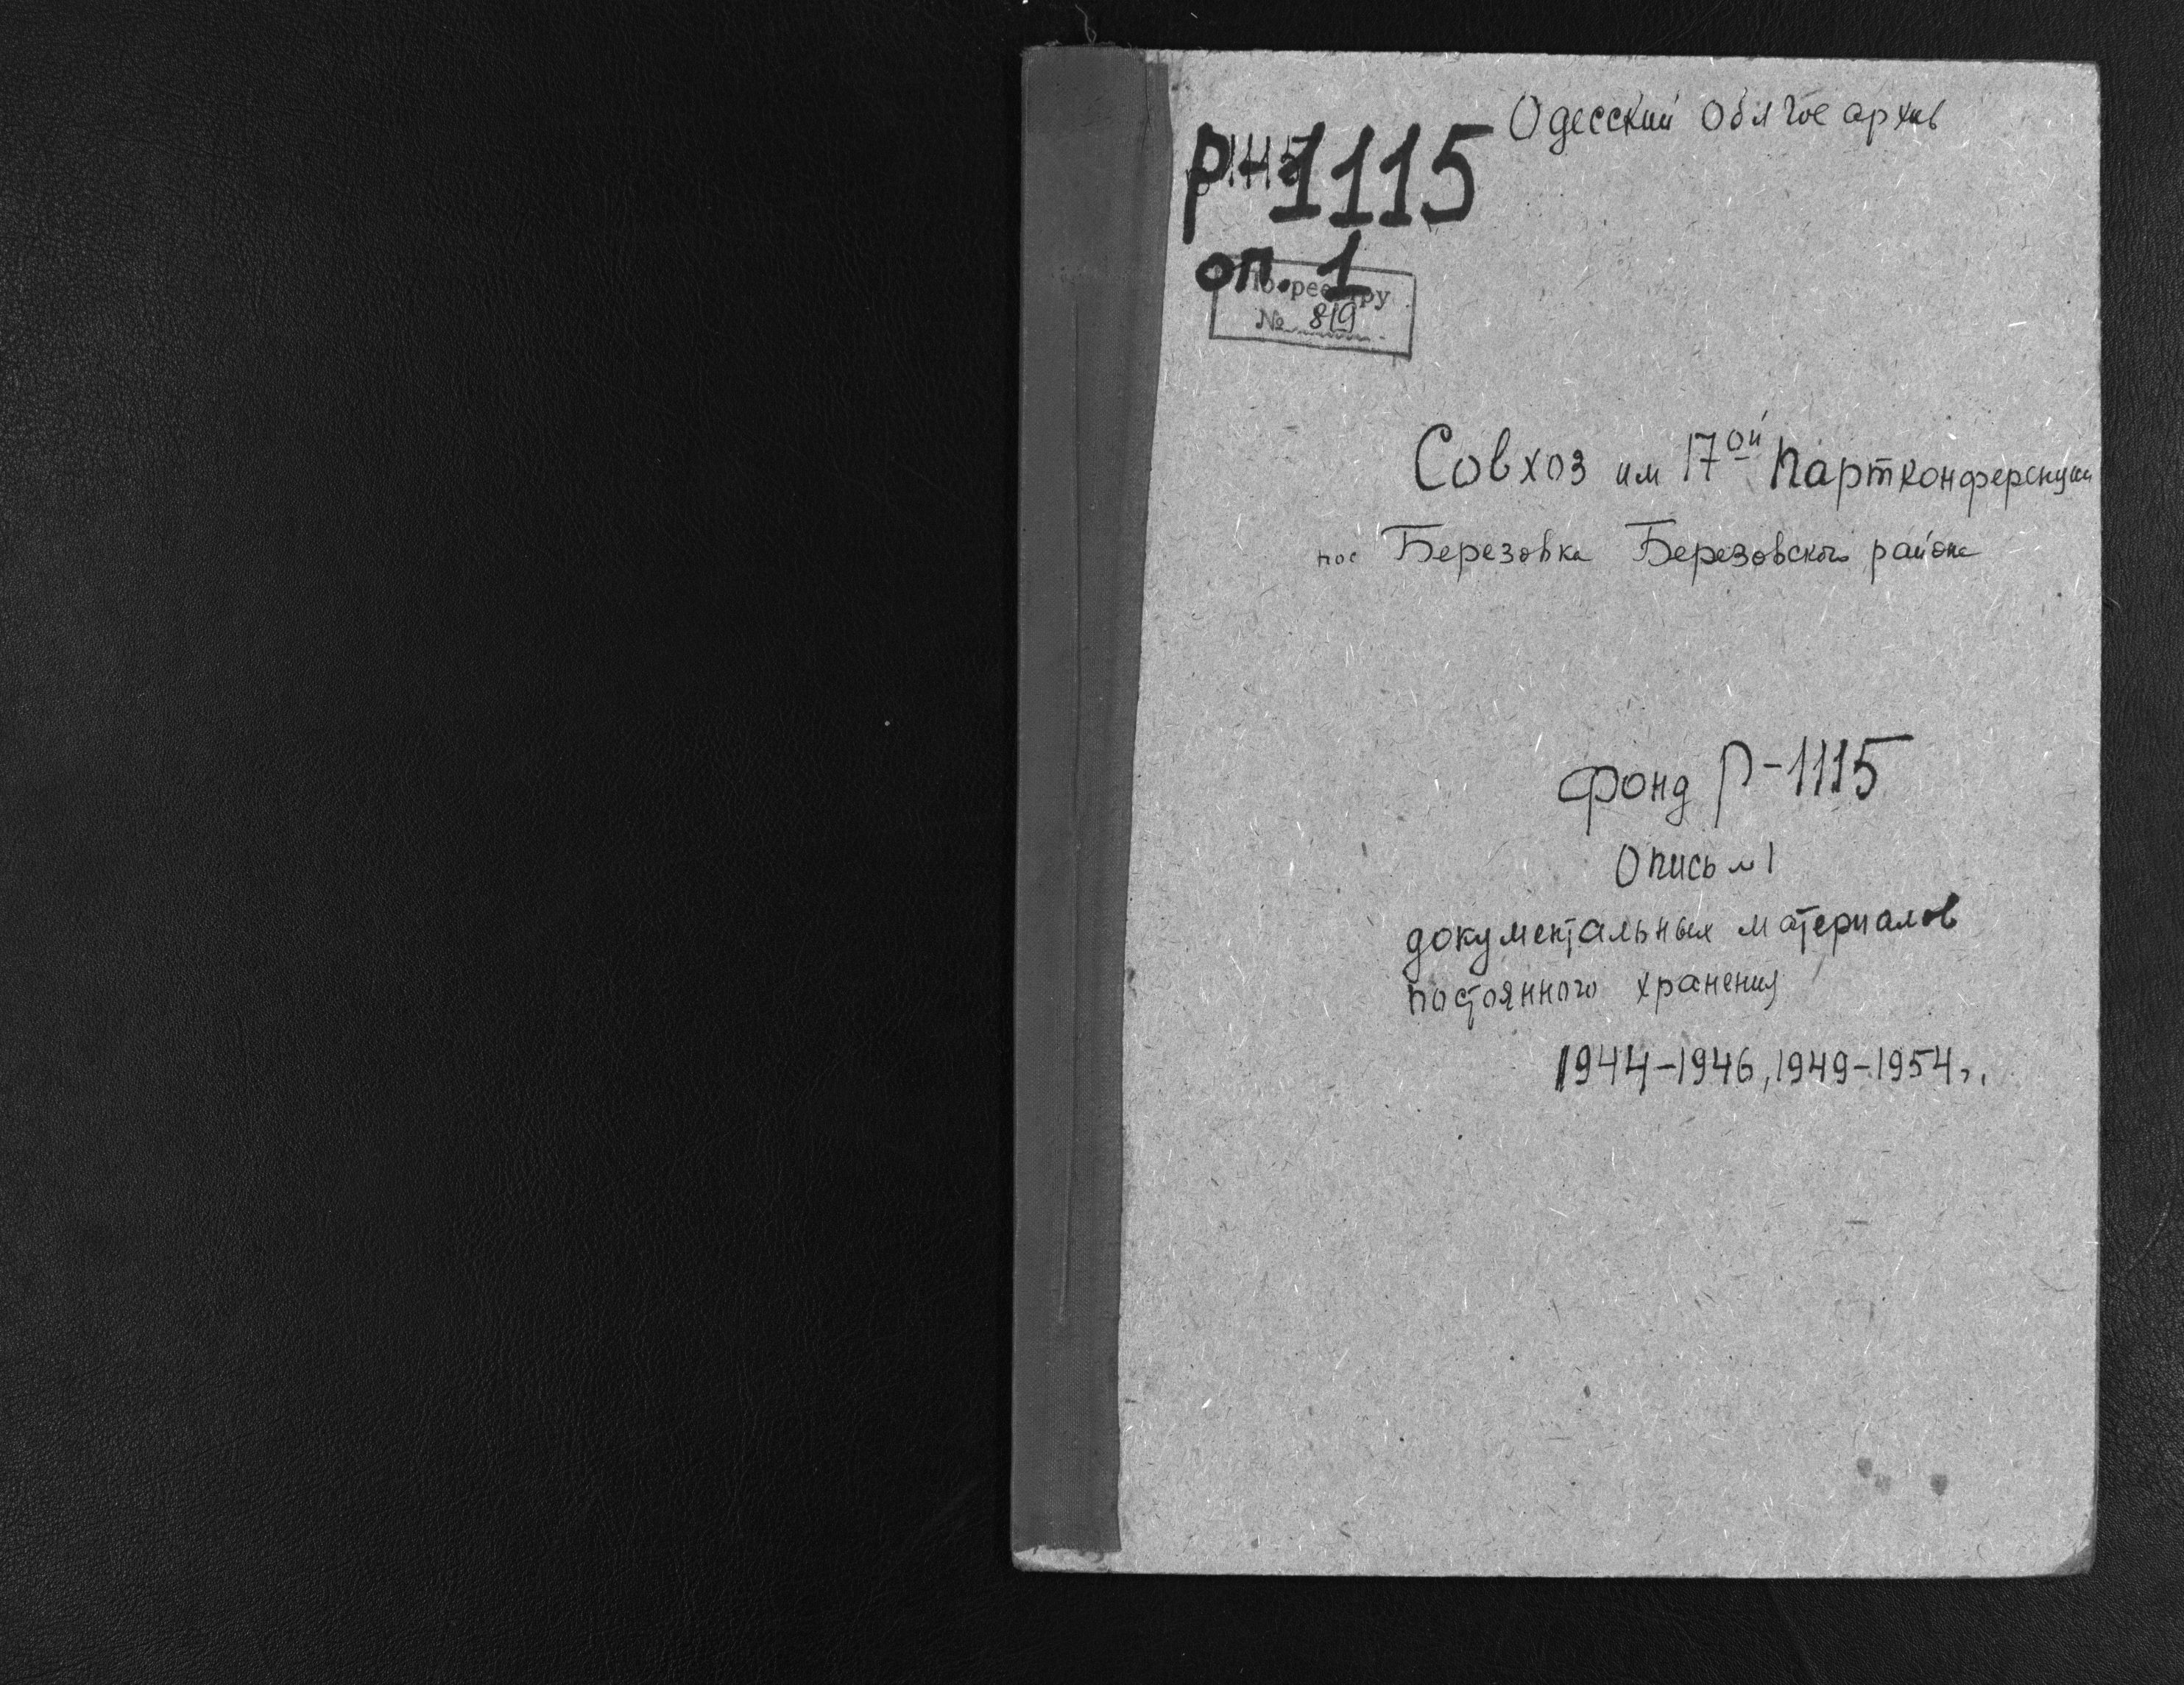 Одесский Облгосархив
Р-1115
оп. 1
По реестру
№ 819
Совхоз им 17ой партконференции
пос Березовка Березовского района
Фонд Р-1115
Опись № 1
документальных материалов
постоянного хранения
1944-1946, 1949-1954 г.